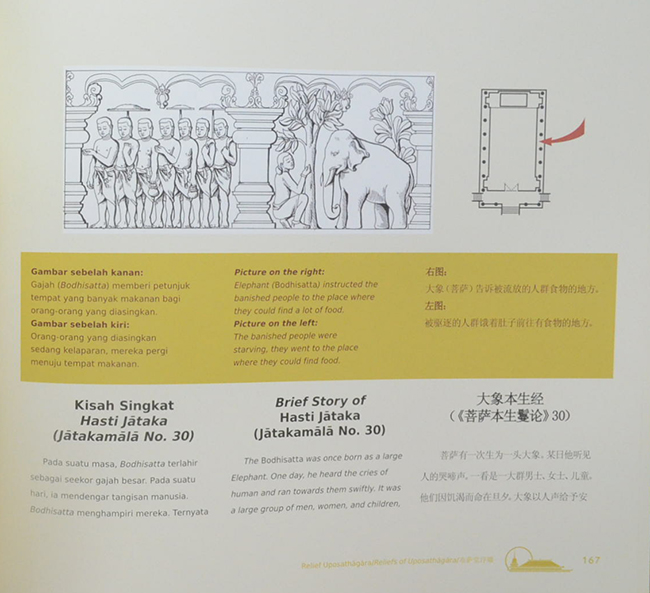 Gambar sebelah kanan:
Gajah (Bodhisatta) memberi petunjuk
tempat yang banyak makanan bagi
orang-orang yang diasingkan.
Gambar sebelah kiri:
Orang-orang yang diasingkan
sedang kelaparan, mereka pergi
menuju tempat makanan.
Picture on the right:
Elephant (Bodhisatta) instructed the
banished people to the place where
they could find a lot of food.
Picture on the left:
The banished people were
starving, they went to the place
where they could find food.
右图:
大象(菩萨)告诉被流放的人群食物的地方.
左图:
被驱逐的人群饿着肚子前往有食物的地方.
Kisah Singkat
Hasti Jātaka
(Jātakamālā No. 30)
Pada suatu masa, Bodhisatta terlahir
sebagai seekor gajah besar. Pada suatu
hari, ia mendengar tangisan manusia.
Bodhisatta menghampiri mereka. Ternyata
Brief Story of
Hasti Jātaka
(Jātakamālā No. 30)
The Bodhisatta was once born as a large
Elephant. One day, he heard the cries of
human and ran towards them swiftly. It was
a large group of men, women, and children,
大象本生经
(《菩萨本生鬘论》30)
菩萨有一次生为一头大象。某日他听见
人的哭啼声,一看是一大群男士,女士,儿童,
他们因饥渴而命在旦夕。大象以人声给予安
Relief Uposathāgāra/Reliefs of Uposathāgāra/
167